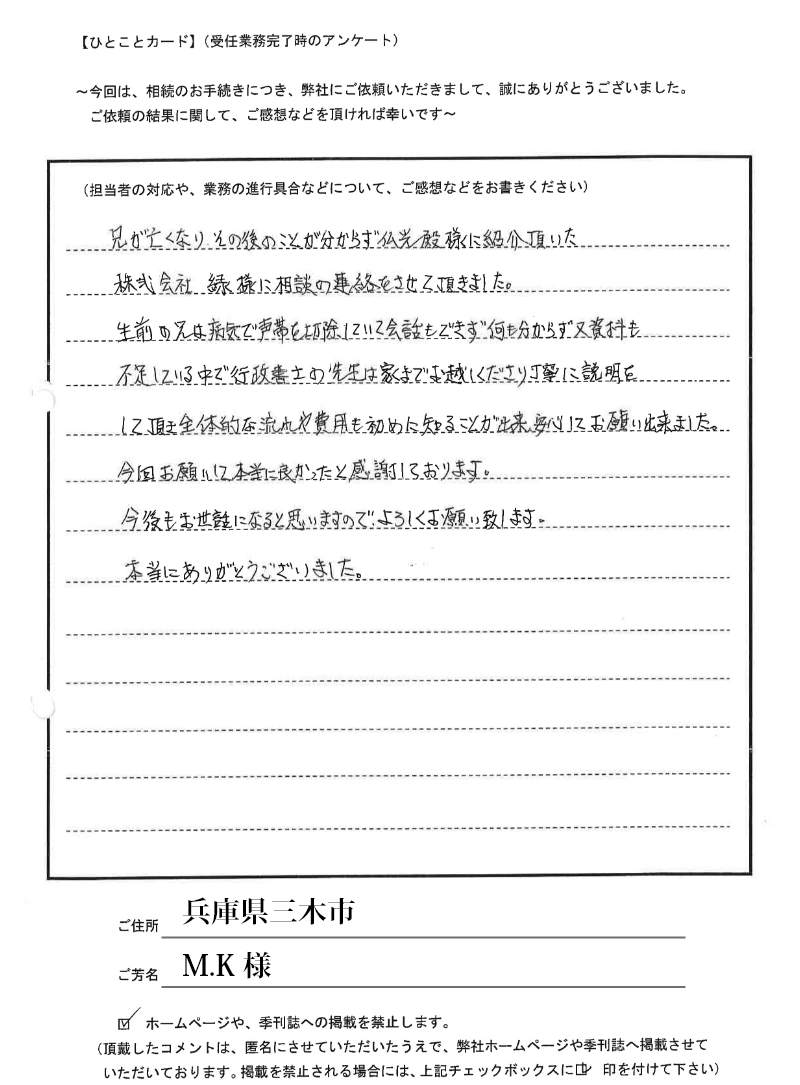 【ひとことカード】（受任業務完了時のアンケート）
～今回は、相続のお手続きにつき、弊社にご依頼いただきまして、誠にありがとうございました。
ご依頼の結果に関して、ご感想などを頂ければ幸いです～
（担当者の対応や、業務の進行具合などについて、ご感想などをお書きください）
兄が亡くなり、その後のことが分からず仏光殿様に紹介頂いた
株式会社 縁様に相談の連絡をさせて頂きました。
生前の兄は病気で声帯を切除していて会話もできず何も分からず又資料も
不足している中で行政書士の先生は家までお越しくださり丁寧に説明を
して頂き全体的な流れや費用も初めに知ることが出来安心してお願い出来ました。
今回お願いして本当に良かったと感謝しております。
今後もお世話になると思いますので、よろしくお願い致します。
本当にありがとうございました。
ご住所 兵庫県三木市
ご芳名 M.K 様
☑ ホームページや、季刊誌への掲載を禁止します。
（頂戴したコメントは、匿名にさせていただいたうえで、弊社ホームページや季刊誌へ掲載させて
いただいております。掲載を禁止される場合には、上記チェックボックスに☑ 印を付けて下さい）